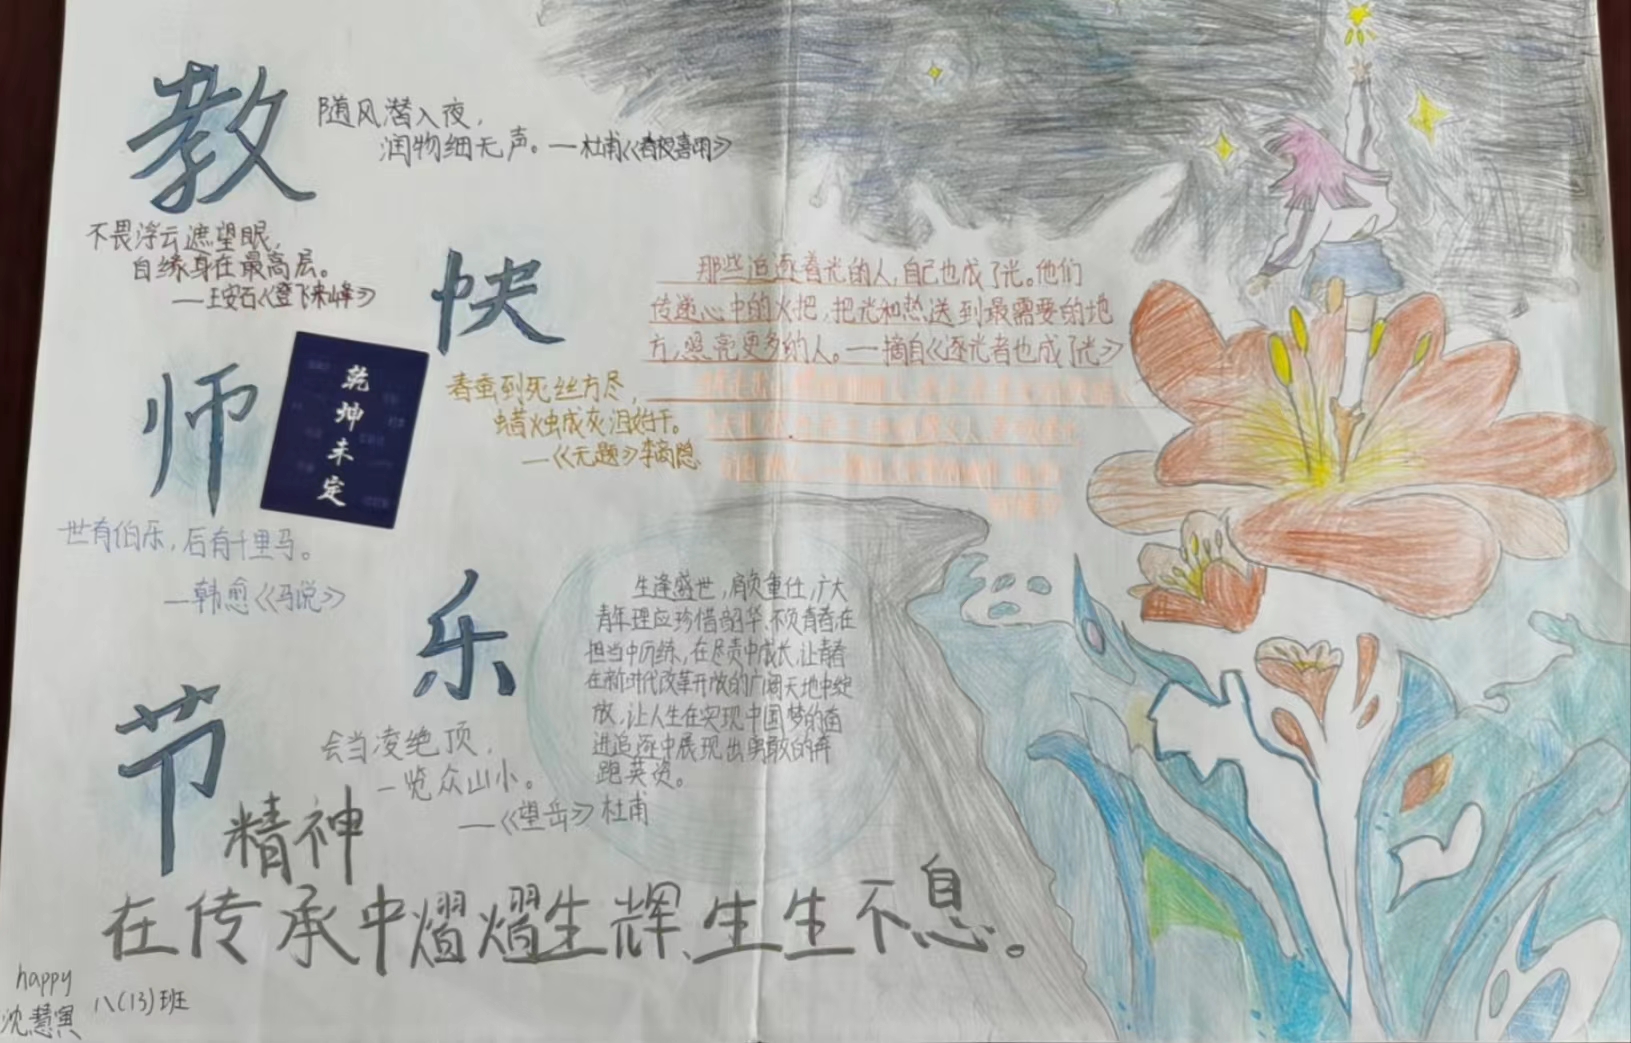 教
随风潜入夜，
润物细无声。—杜甫《春夜喜雨》
不畏浮云遮望眼，
自缘身在最高层。
——王安石《登飞来峰》
快
那些追逐着光的人，自己也成了光。他们
传递心中的火把，把光和热送到最需要的地
方，照亮更多的人。—摘自《逐光者也成了光》
师
乾
坤
未
定
春蚕到死丝方尽，
蜡烛成灰泪始干。
—《无题》李商隐
世有伯乐，后有千里马。
—韩愈《马说》
乐
生逢盛世，肩负重任，广大
青年理应珍惜韶华，不负青春，在
担当中历练，在尽责中成长，让青春
在新时代改革开放的广阔天地中绽
放，让人生在实现中国梦的奋
进追逐中展现出勇敢的奔
跑英姿。
节
会当凌绝顶，
一览众山小。
—《望岳》杜甫
精神
在传承中熠熠生辉、生生不息。
happy
沈慧
八(13)班